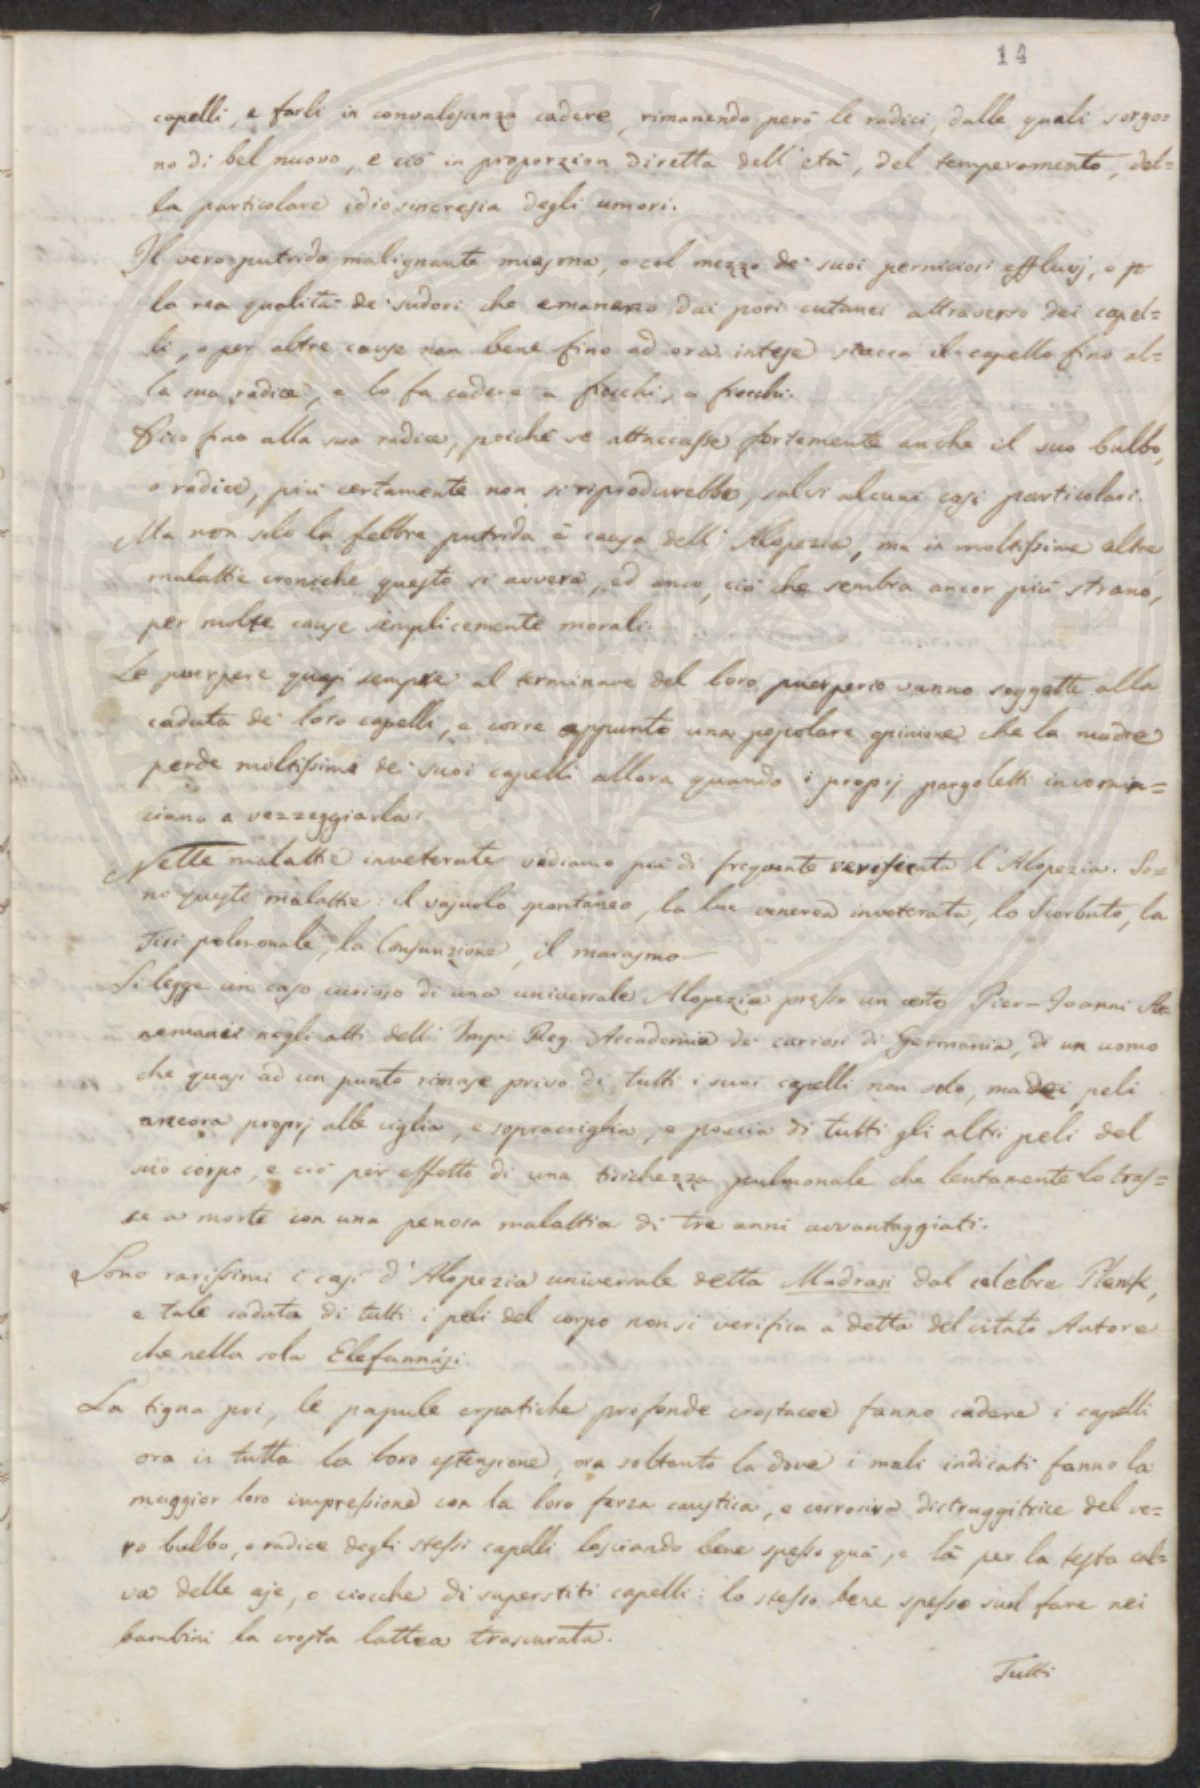 14
capelli, e farli in convalescenza cadere, rimanendo però le radici, dalle quali sorgo=
no di bel nuovo, e ciò in proporzion diretta dell'età, del temperamento, del=
la particolare idiosincresia degli umori.
Il vero putrido malignante miasma, o col mezzo de' suoi perniciosi effluvj, o p
la rea qualità de' sudori che emanano dai pori cutanei attraverso dei capel=
li, o per altre cause non bene fino ad ora intese stacca il capello fino al=
la sua radice, e lo fa cadere a fiocchi, a fiocchi.
Dico fino alla sua radice, poichè se attaccasse fortemente anche il suo bulbo,
o radice, più certamente non si riprodurebbe, salvi alcuni casi particolari.
Ma non solo la febbre putrida è causa dell'Alopezia, ma in moltissime altre
malattie croniche questo si avvera, ed anco, ciò che sembra ancor più strano,
per molte cause semplicemente morali.
Le puerpere quasi sempre al terminare del loro puerperio vanno soggette alla
caduta de' loro capelli, e corre appunto una popolare opinione che la madre
perde moltissimi de' suoi capelli allora quando i proprj pargoletti incomin=
ciano a vezzeggiarla.
Nelle malattie inveterate vediamo più di frequente verificata l'Alopezia. So=
no queste malattie: il vajuolo spontaneo, la lue venerea inveterata, lo Scorbuto, la
Tisi polmonale, la Consunzione, il marasmo—
Si legge un caso curioso di una universale Alopezia presso un certo Pier-Joanni
negli atti dell'Imp. Reg. Accademia de' curiosi di Germania, di un uomo
che quasi ad un punto rimase privo di tutti i suoi capelli non solo, ma dei peli
ancora proprj alle ciglia, e sopracciglia, e poscia di tutti gli altri peli del
suo corpo, e ciò per effetto di una tisichezza pulmonale che lentamente lo tras=
se a morte con una penosa malattia di tre anni avvantaggiati.
Sono rarissimi i casi d'Alopezia universale detta Madrasi dal celebre Plenk,
e tale caduta di tutti i peli del corpo non si verifica a detta del citato Autore
che nella sola Elefannasi.
La tigna poi, le papule erpatiche profonde crostacee fanno cadere i capelli
ora in tutta la loro estensione, ora soltanto la dove i mali indicati fanno la
maggior loro impressione con la loro forza caustica, e corrosiva distruggitrice del ve=
ro bulbo, o radice degli stessi capelli lasciando bene spesso quà, e là per la testa cal=
va delle aje, o ciocche di superstiti capelli: lo stesso bene spesso suol fare nei
bambini la crosta lattea trascurata.
Tutti